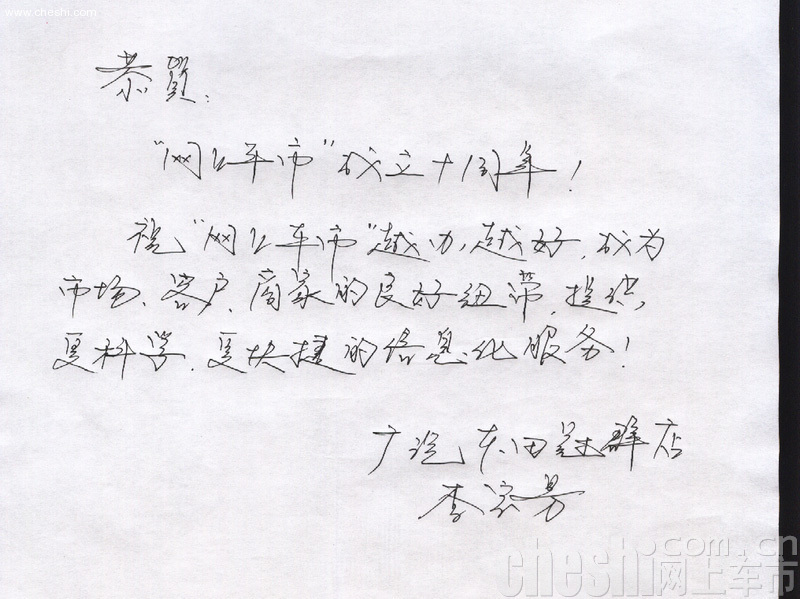 www.cheshi.com
恭贺:
"网上车市"成立十周年!
祝"网上车市"越办,越好,成为
市场、客户、商家的良好纽带,提供
更科学、更快捷的信息化服务!
广汽本田冠群店
李家
cheshi.com.cn
网上车市